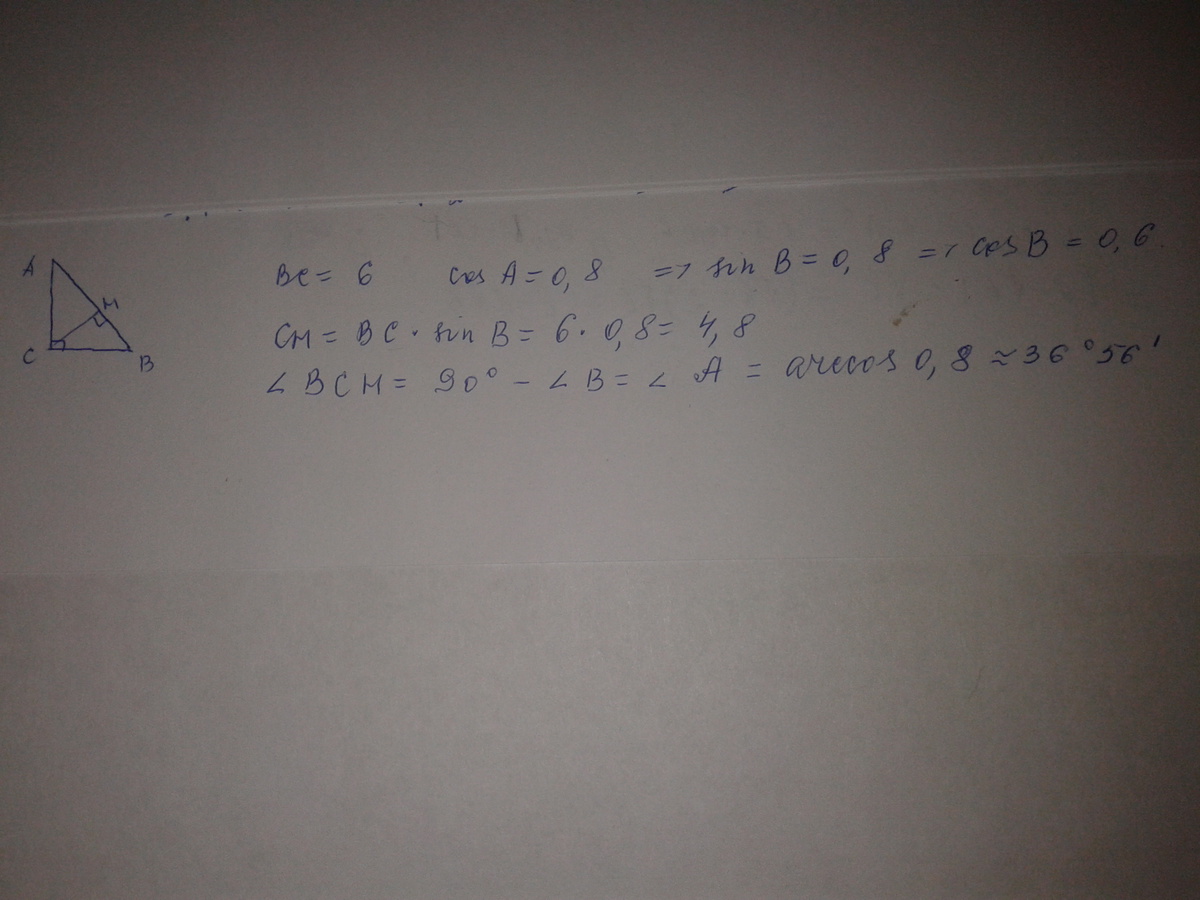 A
M
C
B
BC = 6 cos A = 0,8 => sin B = 0,8 => cos B = 0,6
CH = BC · sin B = 6 · 0,8 = 4,8
∠ BCH = 90° - ∠ B = ∠ A = arccos 0,8 ≈ 36°56'